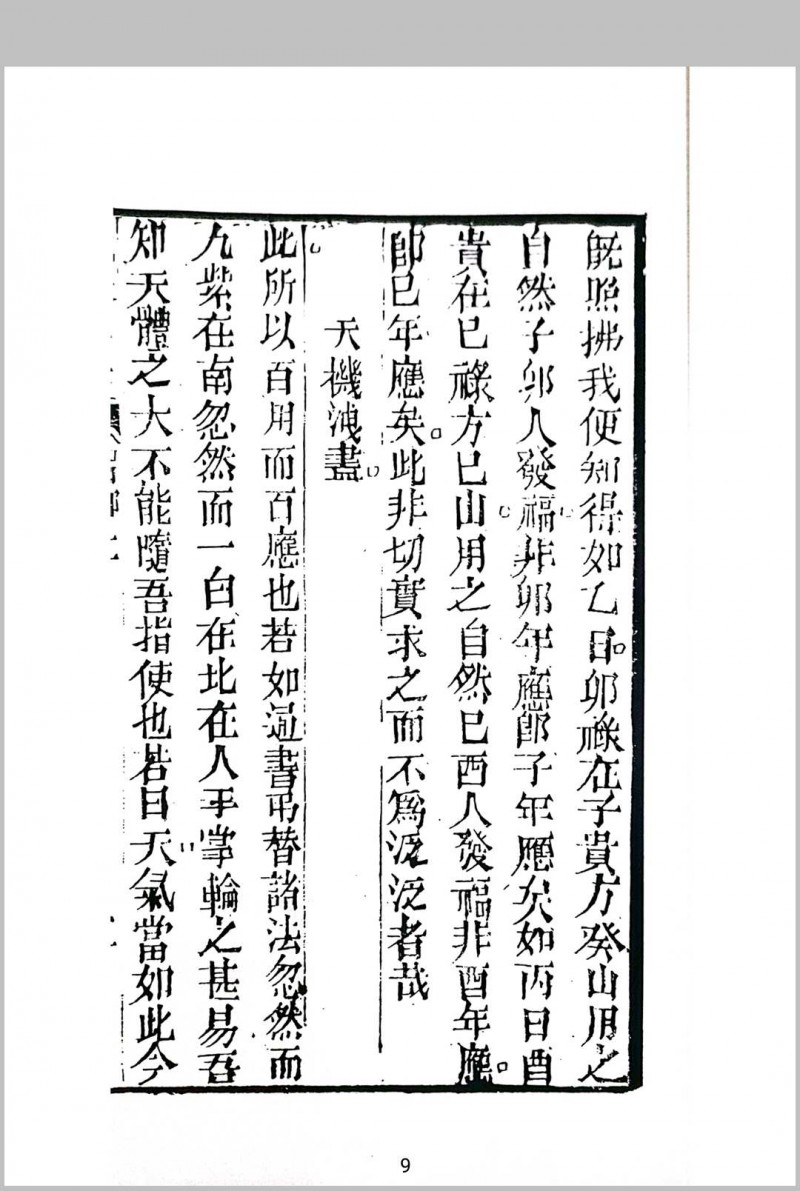 既照拂我便知得如乙日卯祿在子貴方癸山用之
自然子卯人發福非卯年應即子年應矣如丙日酉
貴在巳祿方巳山用之自然巳酉人發福非酉年應
即巳年應矣此非切實求之而不爲泛泛者哉
天機洩盡
此所以百用而百應也若如通書弔替諸法忽然而
九紫在南忽然而一白在北在人平掌輪之甚易吾
知天體之大不能隨吾指使也若曰天氣當如此今
9